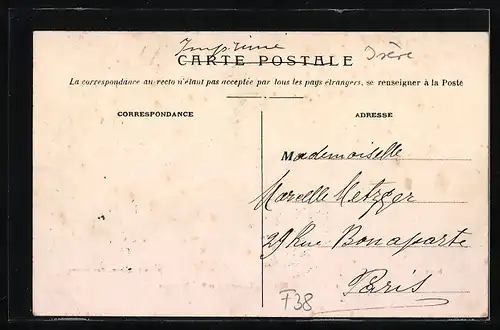 Imprimé
Isère
CARTE POSTALE
La correspondance au recto n'étant pas acceptée par tous les pays étrangers, se renseigner à la Poste
CORRESPONDANCE
ADRESSE
Mademoiselle
Marcelle Metzger
29 Rue Bonaparte
Paris
F38